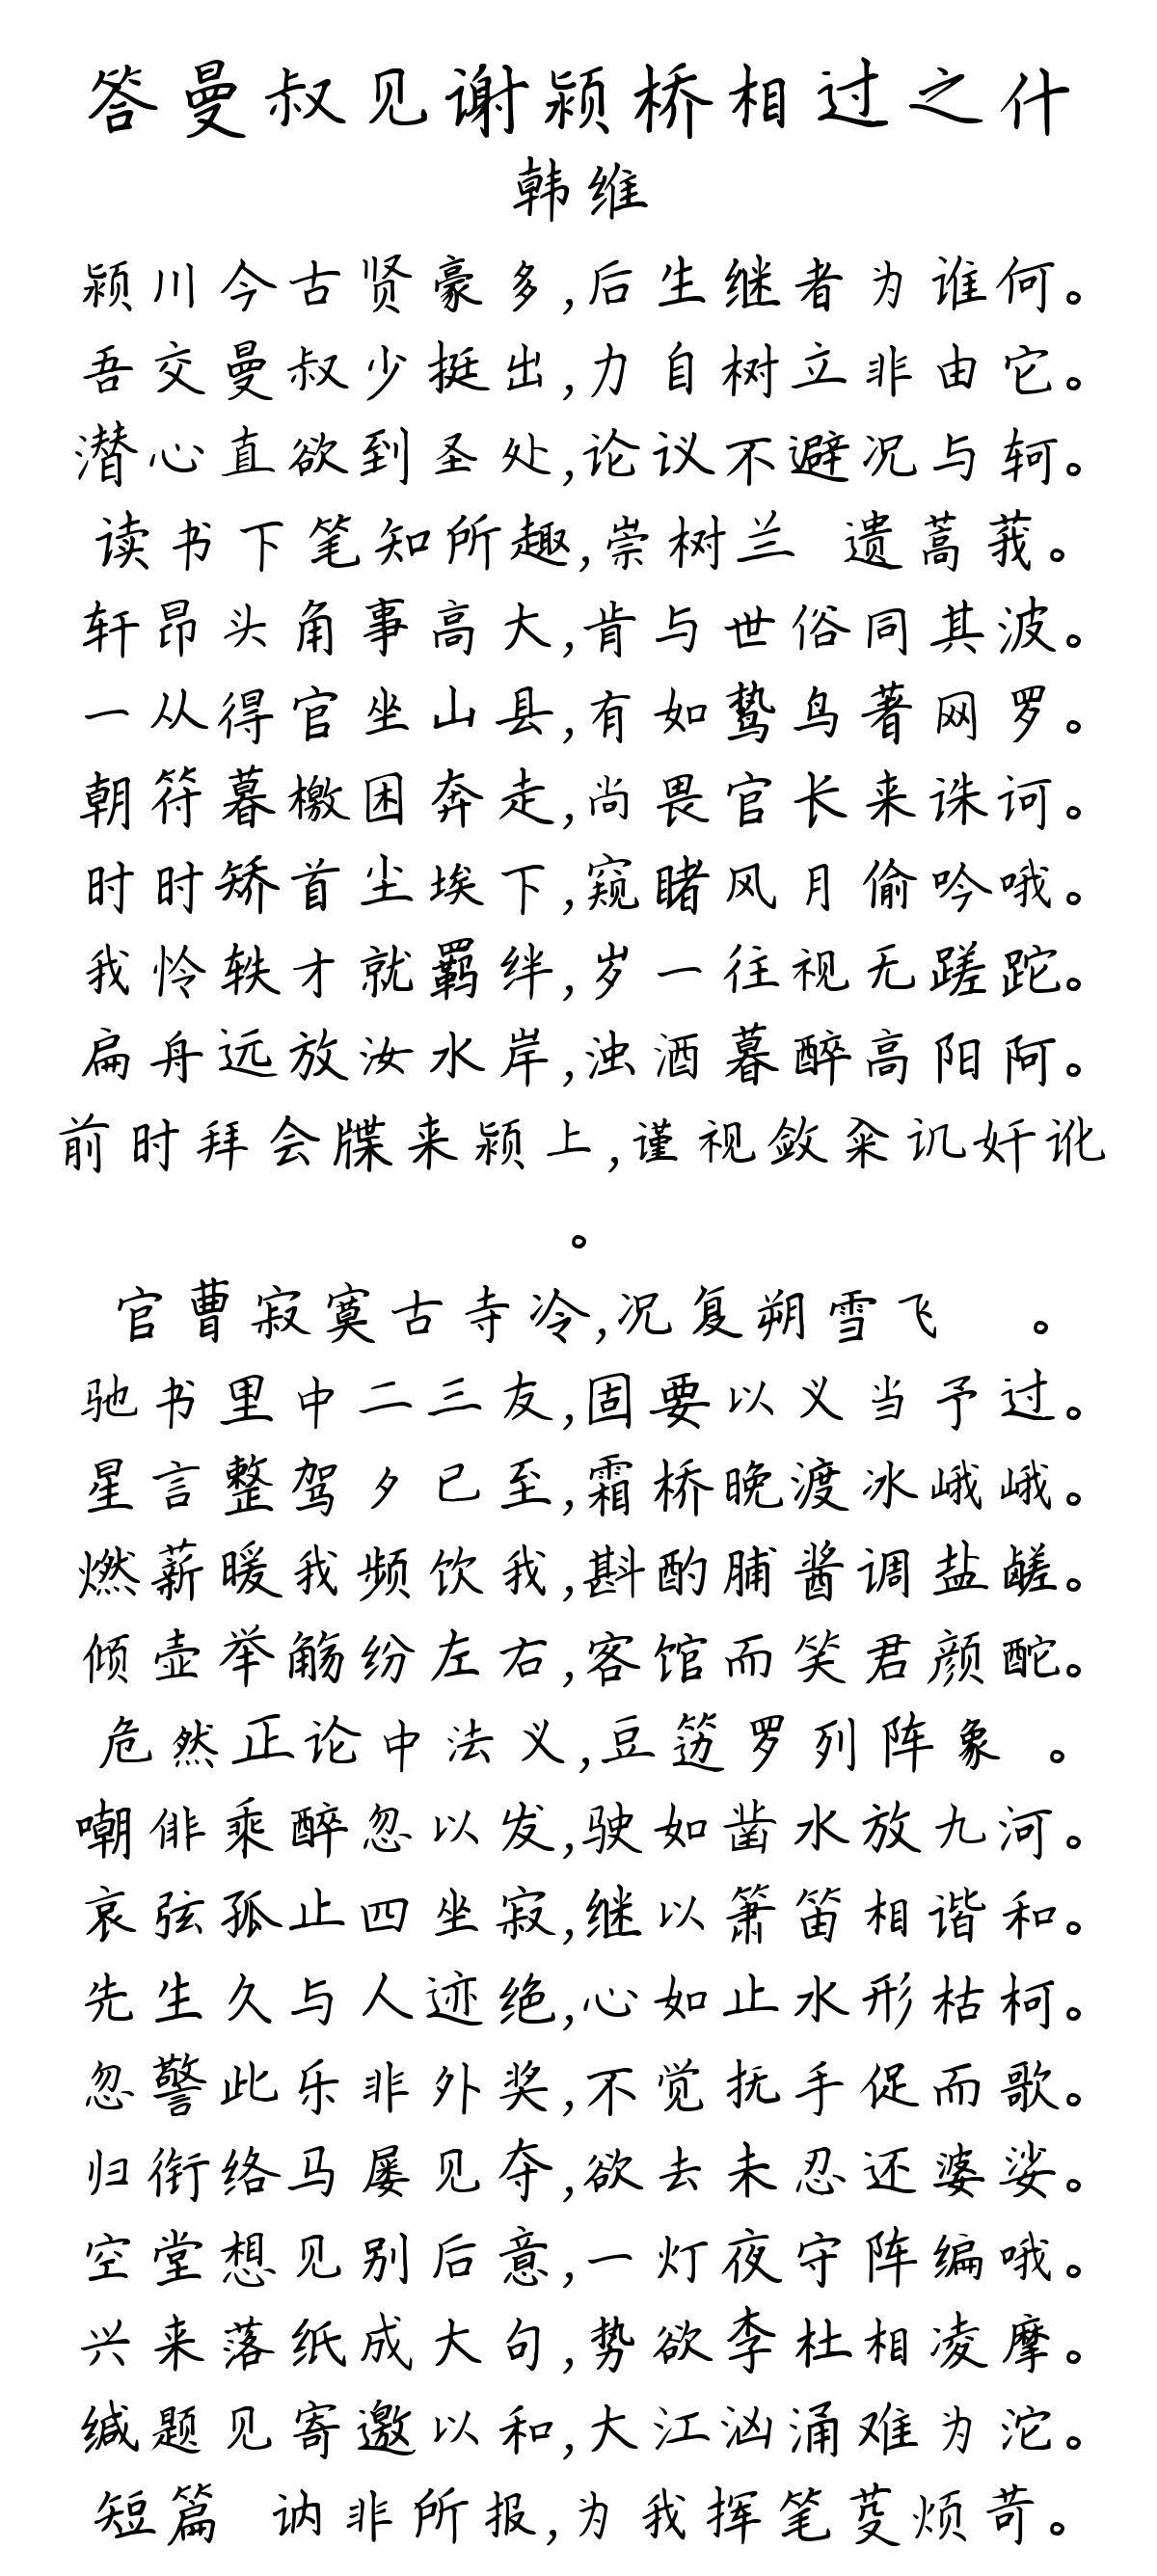 答曼叔见谢颍桥相过之什
韩维
颍川今古贤豪多,后生继者为谁何。
吾交曼叔少挺出,力自树立非由它。
潜心直欲到圣处,论议不避况与轲。
读书下笔知所趣,崇树兰 遗蒿莪。
轩昂头角事高大,肯与世俗同其波。
一从得官坐山县,有如鸷鸟著网罗。
朝符暮檄困奔走,尚畏官长来诛诃。
时时矫首尘埃下,窥睹风月偷吟哦。
我怜轶才就羁绊,岁一往视无蹉跎。
扁舟远放汝水岸,浊酒暮醉高阳阿。
前时拜会牒来颍上,谨视敛籴讥奸讹
。
官曹寂寞古寺冷,况复朔雪飞 。
驰书里中二三友,固要以义当予过。
星言整驾夕已至,霜桥晚渡冰峨峨。
燃薪暖我频饮我,斟酌脯酱调盐鹾。
倾壶举觞纷左右,客馆而笑君颜酡。
危然正论中法义,豆笾罗列阵象 。
嘲俳乘醉忽以发,驶如凿水放九河。
哀弦孤止四坐寂,继以箫笛相谐和。
先生久与人迹绝,心如止水形枯柯。
忽警此乐非外奖,不觉抚手促而歌。
归衔络马屡见夺,欲去未忍还婆娑。
空堂想见别后意,一灯夜守阵编哦。
兴来落纸成大句,势欲李杜相凌摩。
缄题见寄邀以和,大江汹涌难为沱。
短篇 讷非所报,为我挥笔芟烦苛。